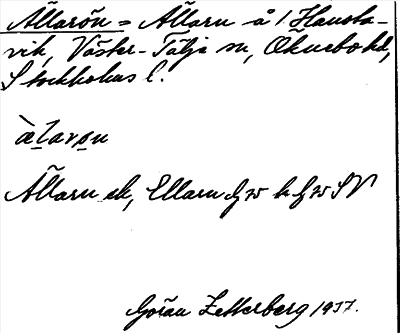 Ällarön = Ällarn å 1 Hansta-
vik, Väster-Tälje sn, Öknebo hd,
Stockholms l.
ä̀laro̱n
Ällarn ek, Ellarn Gw k Gw SV
Göran Zetterberg 1937.